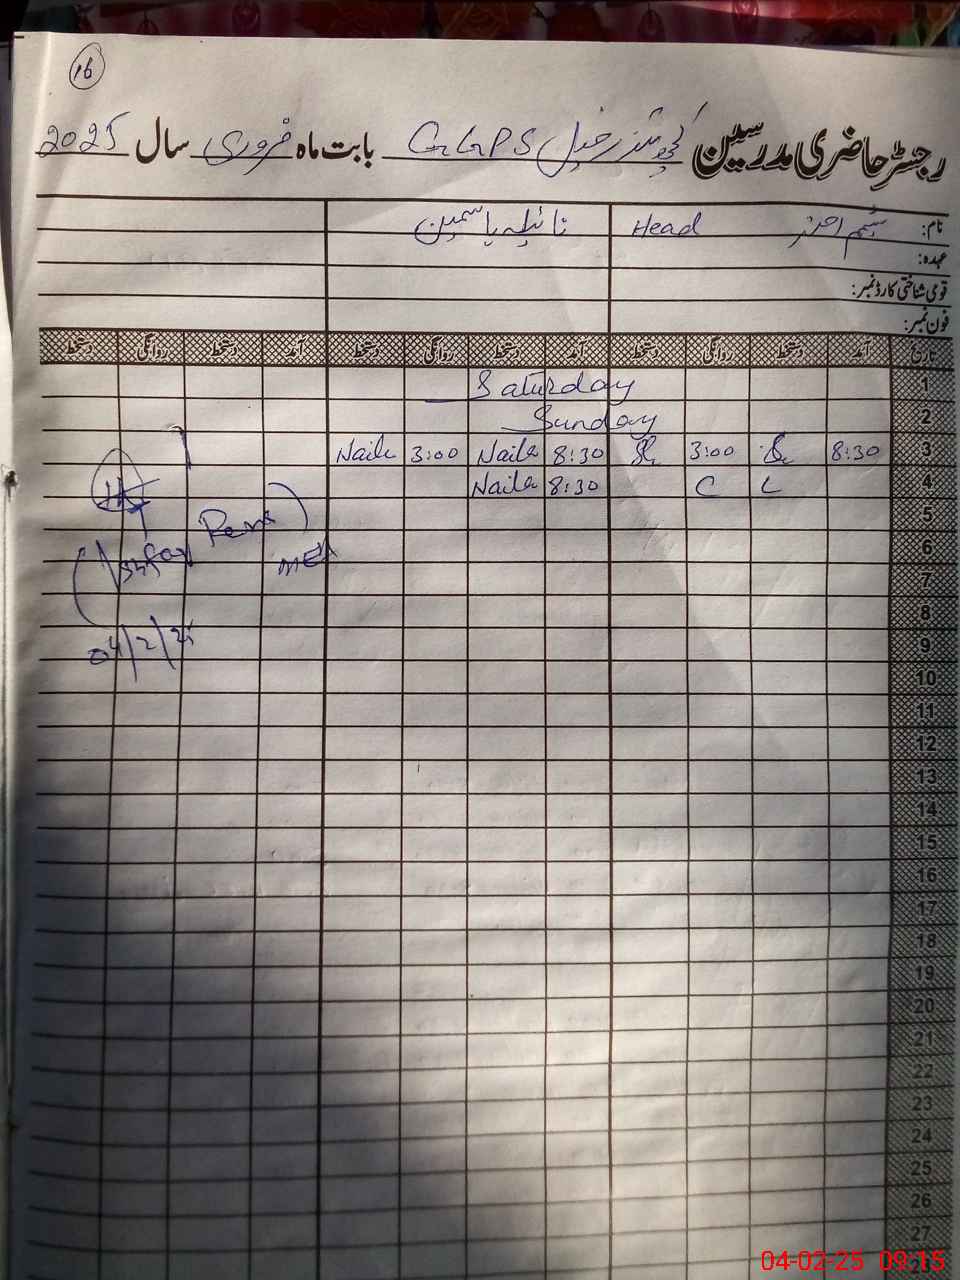 16
رجسٹر حاضری مدرسین GGPS بابت ماہ فروری سال 2025
نام: Head نائیلہ یاسمین
عہدہ:
قومی شناختی کارڈ نمبر:
فون نمبر:
تاریخ آمد دستخط روانگی دستخط آمد دستخط روانگی دستخط آمد دستخط روانگی دستخط
1 Saturday
2 Sunday
3 8:30 3:00 8:30 Naila 3:00 Naila
4 C L 8:30 Naila
5
6
7
8
9
10
11
12
13
14
15
16
17
18
19
20
21
22
23
24
25
26
27
28
04/2/25
04-02-25 09:15